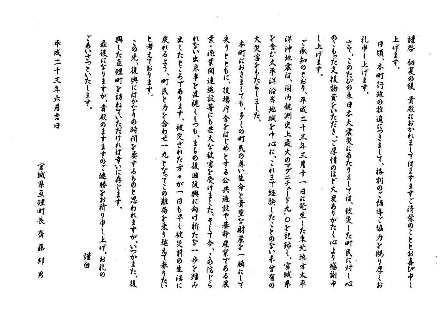 謹啓 初夏の候 貴殿におかれましてはますますご清栄のこととお喜び申し
上げます。
日頃、本町行政の推進につきまして、格別のご指導ご協力を賜り厚くお
礼申し上げます。
さて、このたびの東日本大震災にあたりましては、被災した町民に対し心
のこもった支援物資をいただき、ご厚情のほど大変ありがたく心より感謝申
し上げます。
ご承知のとおり、平成二十三年三月十一日に発生した東北地方太平
洋沖地震は、国内観測史上最大のマグニチュード九・〇を記録し、宮城県
を含む太平洋沿岸地域を中心に、これまで経験したことのない未曾有の
大災害をもたらしました。
本町におきましても、多くの町民の尊い生命と貴重な財産を一瞬にして
失うとともに、役場庁舎をはじめとする公共施設や基幹産業である農
業・漁業関連施設等にも甚大な被害を受けました。そして今、この信じら
れない出来事を直視しつつも、まちの復旧復興に向け新たな一歩を踏み
出したところであります。被災された方々が一日も早く被災前の生活に
戻れるよう、町民と力を合わせ一丸となってこの難局を乗り越えて参りたい
と考えております。
この先、復興には かなりの時間を要するものと思われますが、いつかまた、復
興した亘理町を訪ねていただければ幸いに存じます。
最後になりますが、貴殿のますますのご健勝をお祈り申し上げ、お礼の
ごあいさつといたします。
謹白
平成二十三年六月吉日
宮城県亘理町長 齋藤邦男